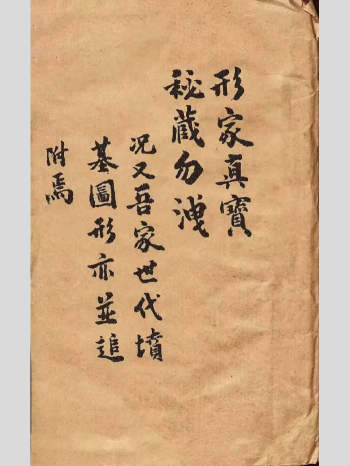 形家真寶
秘藏勿洩
况又吾家世代墳
墓圖形亦並追
附焉